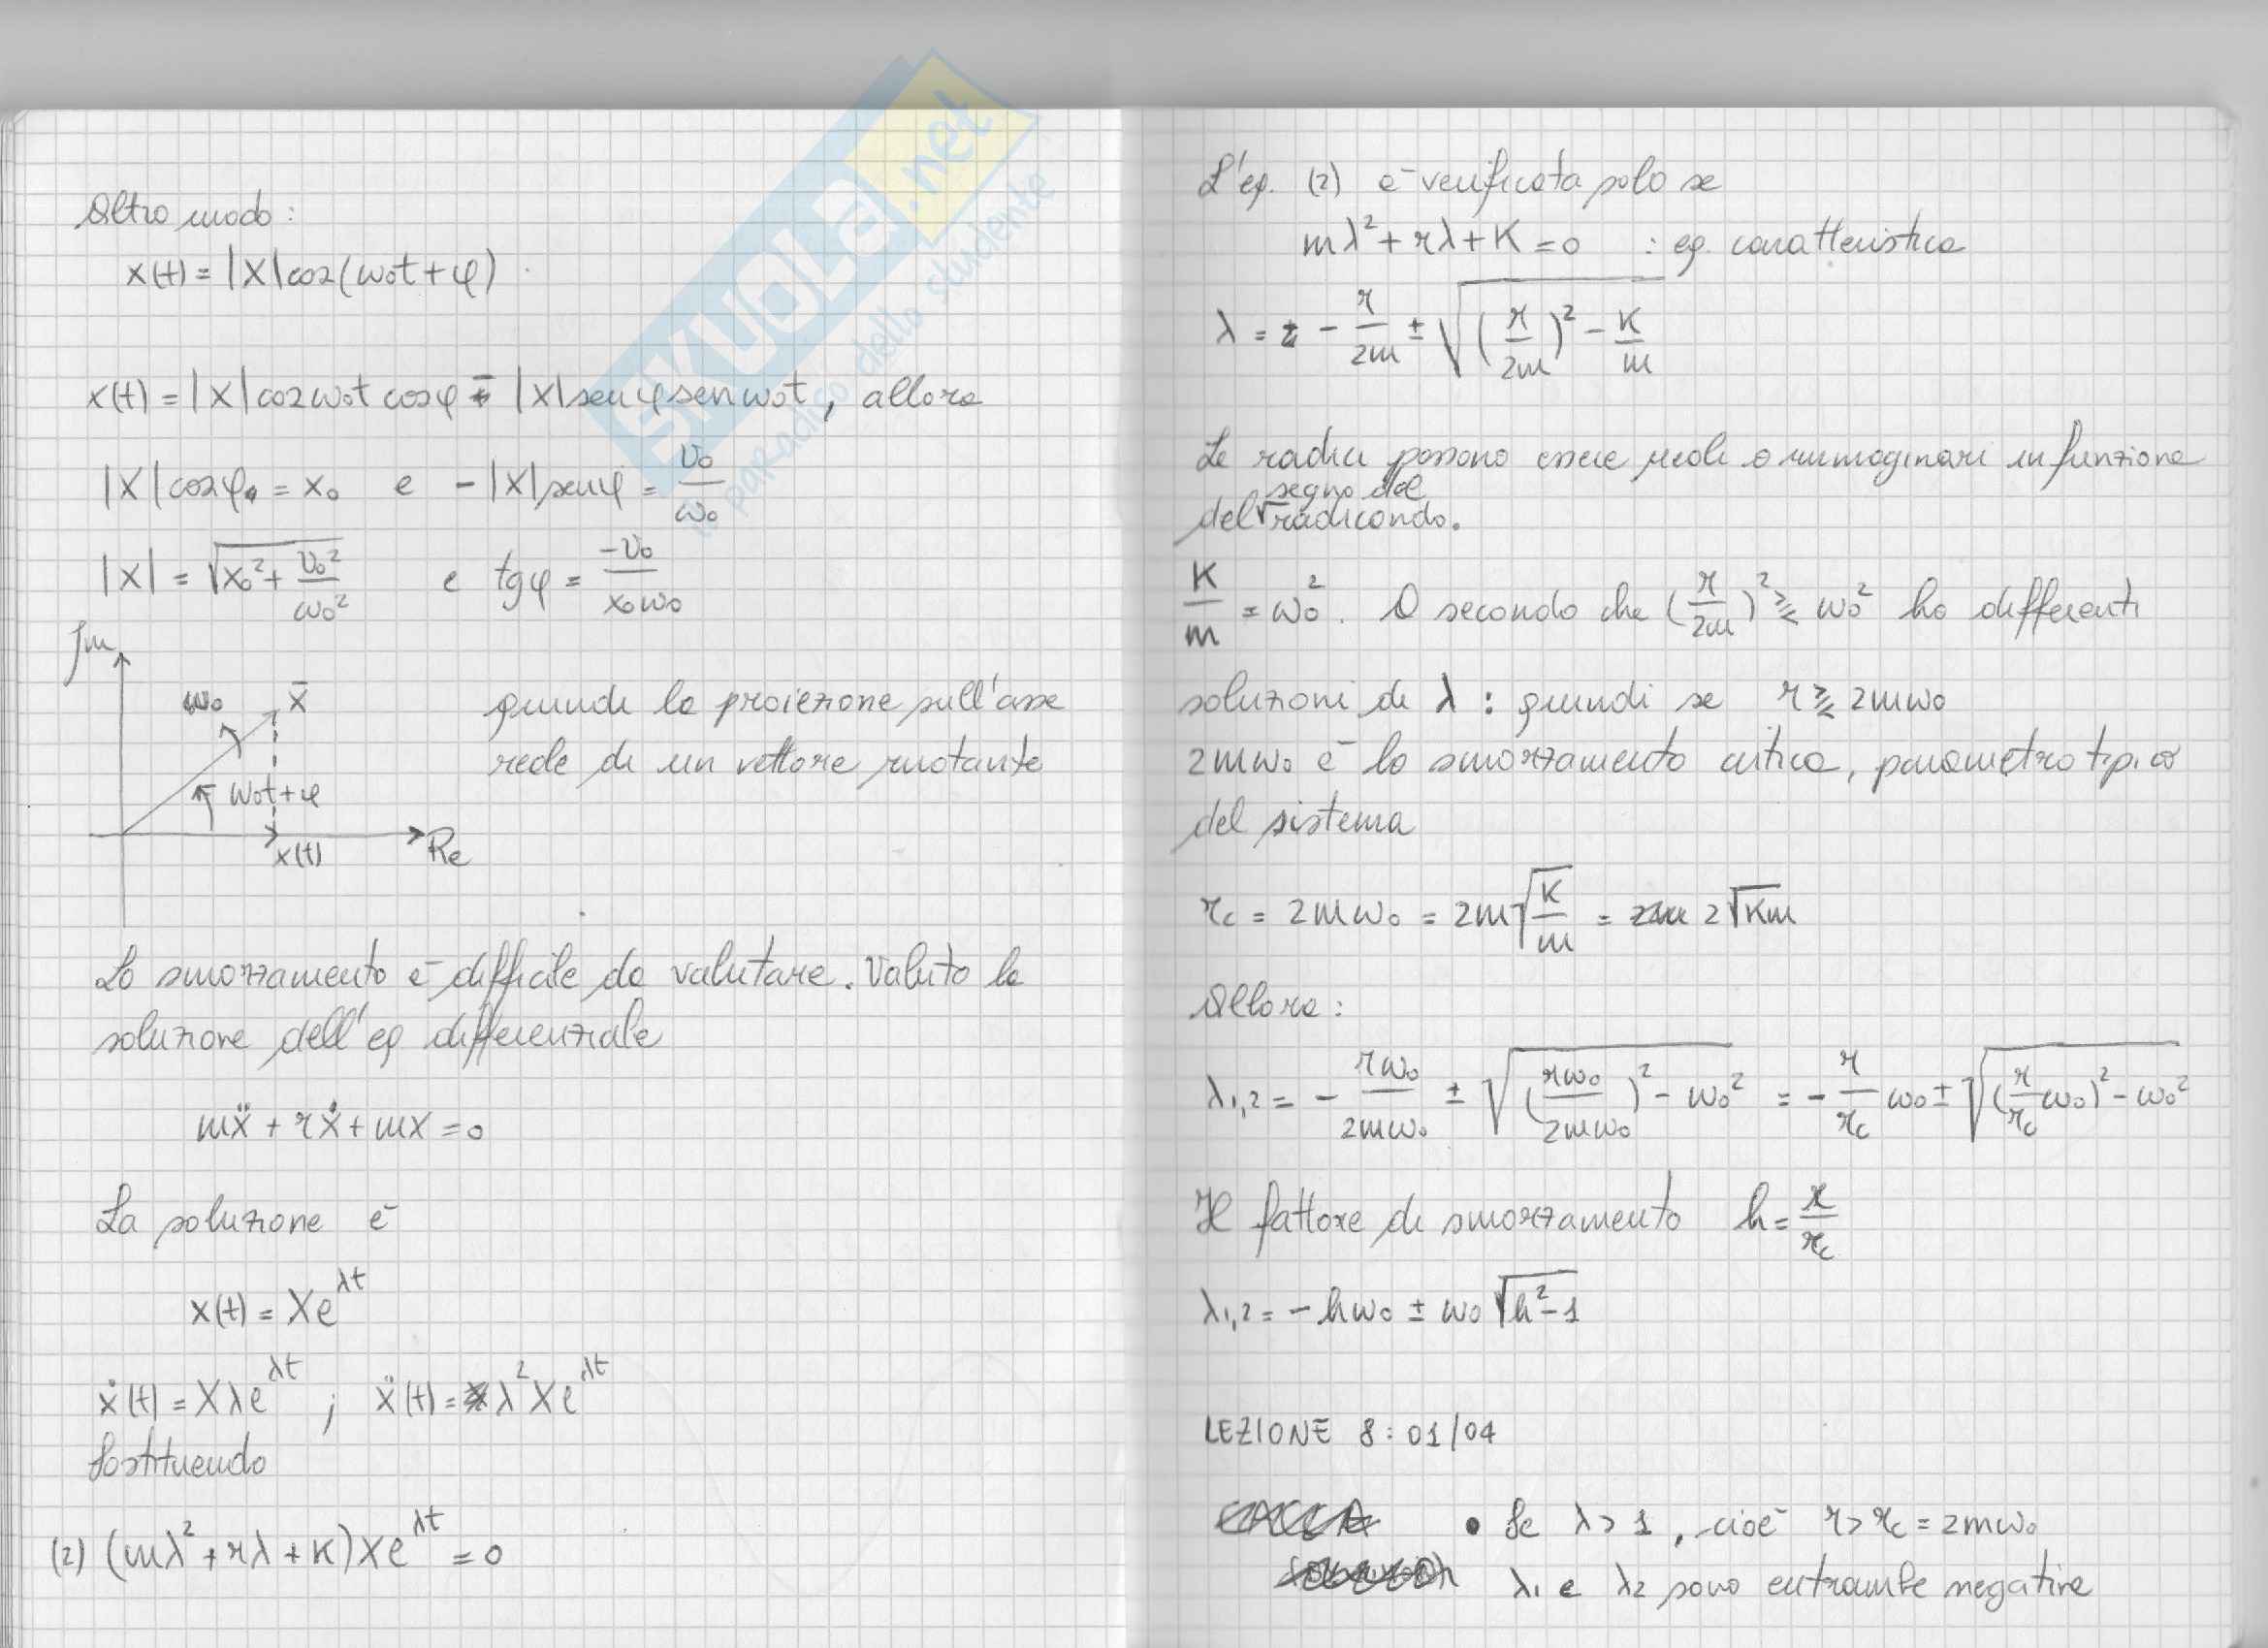 Altro modo:
x(t) = |X|cos(ω₀t+φ)
x(t) = |X|cosω₀t cosφ - |X|senφsenω₀t, allora
|X|cosφ = x₀ e -|X|senφ = v₀/ω₀
|X| = √(x₀²+v₀²/ω₀²) e tgφ = -v₀/(x₀ω₀)
Im
ω₀ x̄
quindi la proiezione sull'asse
reale di un vettore ruotante
ω₀t+φ
x(t)
Re
Lo smorzamento è difficile da valutare. Valuto la
soluzione dell'eq differenziale
mẍ + rẋ + mx = 0
La soluzione è
x(t) = Xe^λt
ẋ(t) = Xλe^λt ; ẍ(t) = λ²Xe^λt
Sostituendo
(2) (mλ²+rλ+K)Xe^λt = 0
L'eq. (2) è verificata solo se
mλ²+rλ+K = 0 : eq. caratteristica
λ = - r/2m ± √((r/2m)² - K/m)
Le radici possono essere reali o immaginari in funzione
del segno del radicando.
K/m = ω₀². A seconda che (r/2m)² ⪌ ω₀² ho differenti
soluzioni di λ : quindi se r ⪌ 2mω₀
2mω₀ è lo smorzamento critico, parametro tipico
del sistema
r_c = 2mω₀ = 2m√(K/m) = 2√Km
Allora:
λ₁,₂ = - rω₀/2mω₀ ± √((rω₀/2mω₀)² - ω₀²) = - r/r_c ω₀ ± √((r/r_c ω₀)² - ω₀²)
Il fattore di smorzamento h = r/r_c
λ₁,₂ = -hω₀ ± ω₀√(h²-1)
LEZIONE 8: 01/04
• Se λ>1, cioè r>r_c = 2mω₀
λ₁ e λ₂ sono entrambe negative
SKUOLA.net
il paradiso dello studente